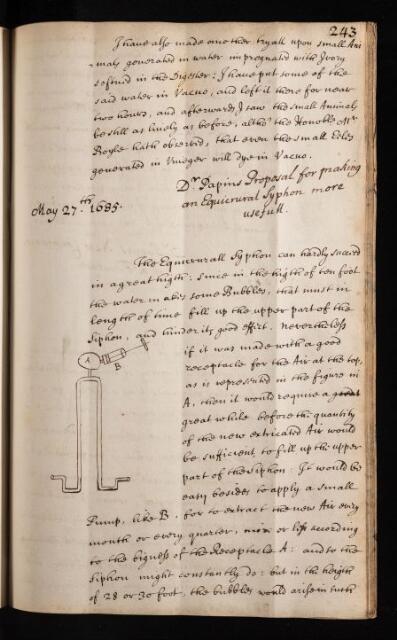 243
I have also made another tryall upon small Ani
-mals generated in water impregnated with Ivory
softned in the Digester: I have put some of the
said water in Vacuo, and left it there for near
two hours, and afterwards I saw the small Animals
be still as lively as before, altho' the Honoble Mr
Boyle hath observed, that even the small Eeles
generated in Vineger will dye in Vacuo.
Dr Papins Proposal for making
an Equicrural Syphon more
usefull.
May 27th. 1685.
The Equicrurall Syphon can hardly succeed
in a great higth: since in the higth of ten foot
the water makes some Bubbles, that must in
length of time fill up the upper part of the
Siphon, and hinder its good effect. nevertheless
if it was made with a good
receptacle for the Air at the top,
as is represented in the figure in
A, then it would require a great
great while before the quantity
of the new extricated Air would
be sufficient to fill up the upper
part of the Siphon: It would be
easy besides to apply a small
Pump, like B. for to extract the new Air every
month or every quarter, more or less according
to the bigness of the Receptacle A: and so the
Siphon might constantly do: but in the heigth
of 28 or 30 foot, the bubbles would arise in such
A
B